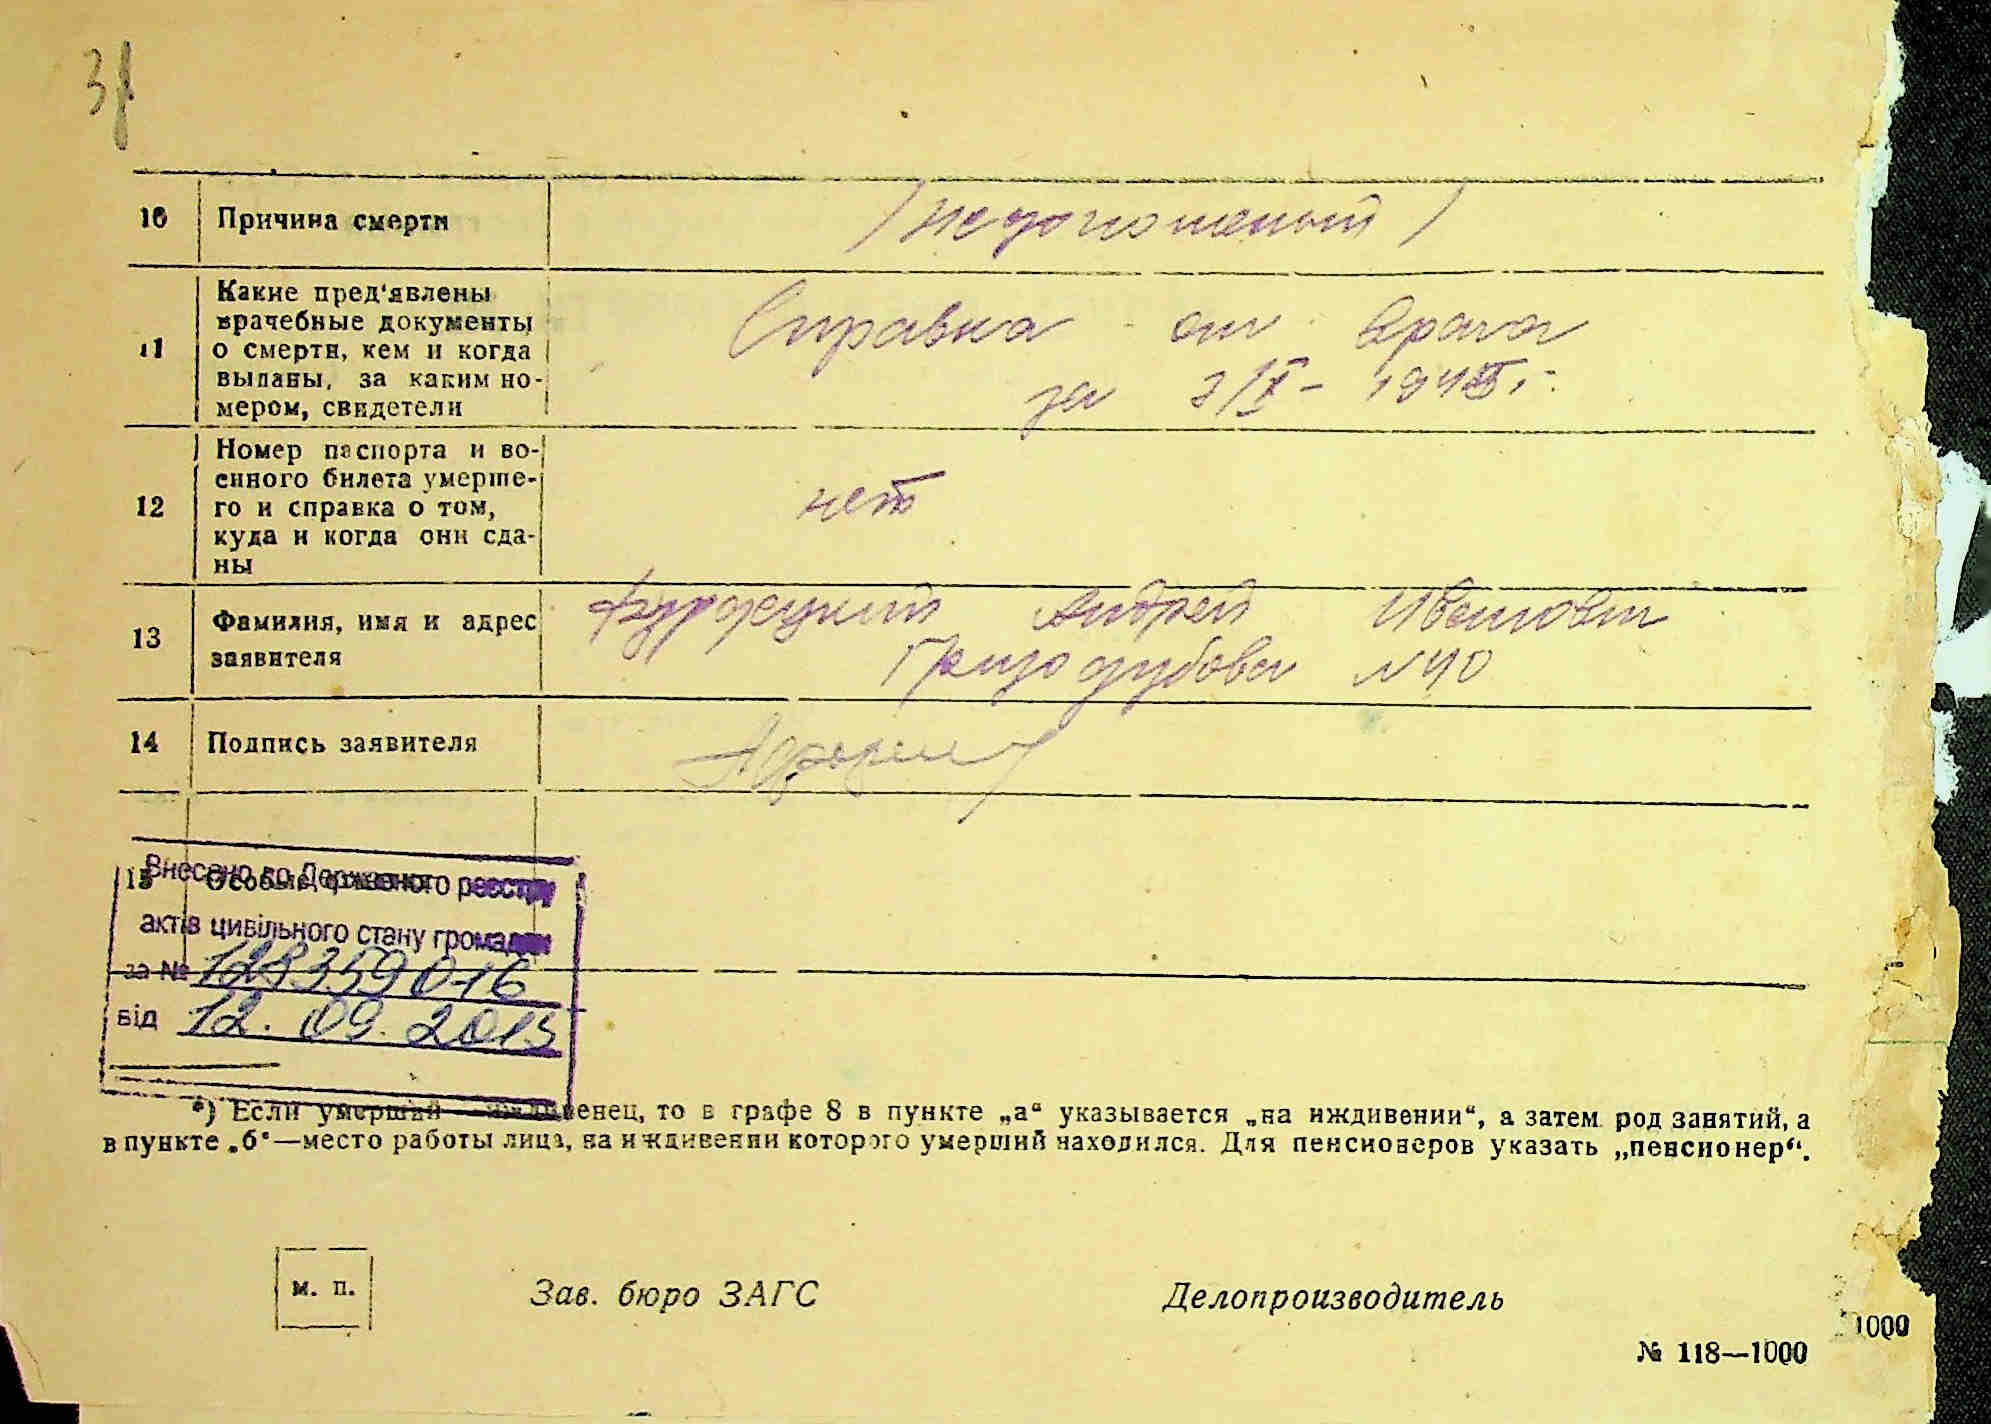 10 Причина смерти / недоношеный /
11 Какие пред'явлены врачебные документы о смерти, кем и когда выданы, за каким номером, свидетели
Справка от врача
за
12 Номер паспорта и военного билета умершего и справка о том, куда и когда они сданы
нет
13 Фамилия, имя и адрес заявителя
Андрей Иванович
Гризодубова №40
14 Подпись заявителя
15 Особые
Внесено до Державного реєстру
актів цивільного стану громадян
за № 128359016
від 12.09.2013
*) Если умерший иждивенец, то в графе 8 в пункте „а“ указывается „на иждивении“, а затем род занятий, а
в пункте „б“—место работы лица, на иждивении которого умерший находился. Для пенсионеров указать „пенсионер“.
м. п. Зав. бюро ЗАГС Делопроизводитель
1000
№ 118—1000